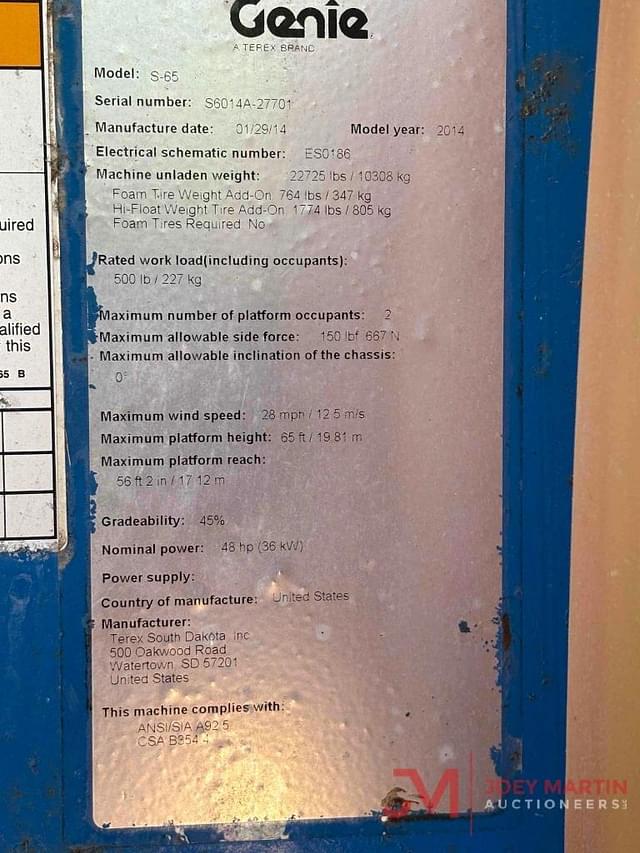 Genie
A TEREX BRAND
Model: S-65
Serial number: S6014A-27701
Manufacture date: 01/29/14 Model year: 2014
Electrical schematic number: ES0186
Machine unladen weight: 22725 lbs / 10308 kg
Foam Tire Weight Add-On 764 lbs / 347 kg
Hi-Float Weight Tire Add-On 1774 lbs / 805 kg
Foam Tires Required No
Rated work load(including occupants):
500 lb / 227 kg
Maximum number of platform occupants: 2
Maximum allowable side force: 150 lbf 667 N
Maximum allowable inclination of the chassis:
0°
Maximum wind speed: 28 mph / 12.5 m/s
Maximum platform height: 65 ft / 19.81 m
Maximum platform reach:
56 ft 2 in / 17.12 m
Gradeability: 45%
Nominal power: 48 hp (36 kW)
Power supply:
Country of manufacture: United States
Manufacturer:
Terex South Dakota, Inc
500 Oakwood Road
Watertown, SD 57201
United States
This machine complies with:
ANSI/SIA A92.5
CSA B354.4
uired
ons
ns
a
alified
this
65 B
JM JOEY MARTIN
AUCTIONEERS